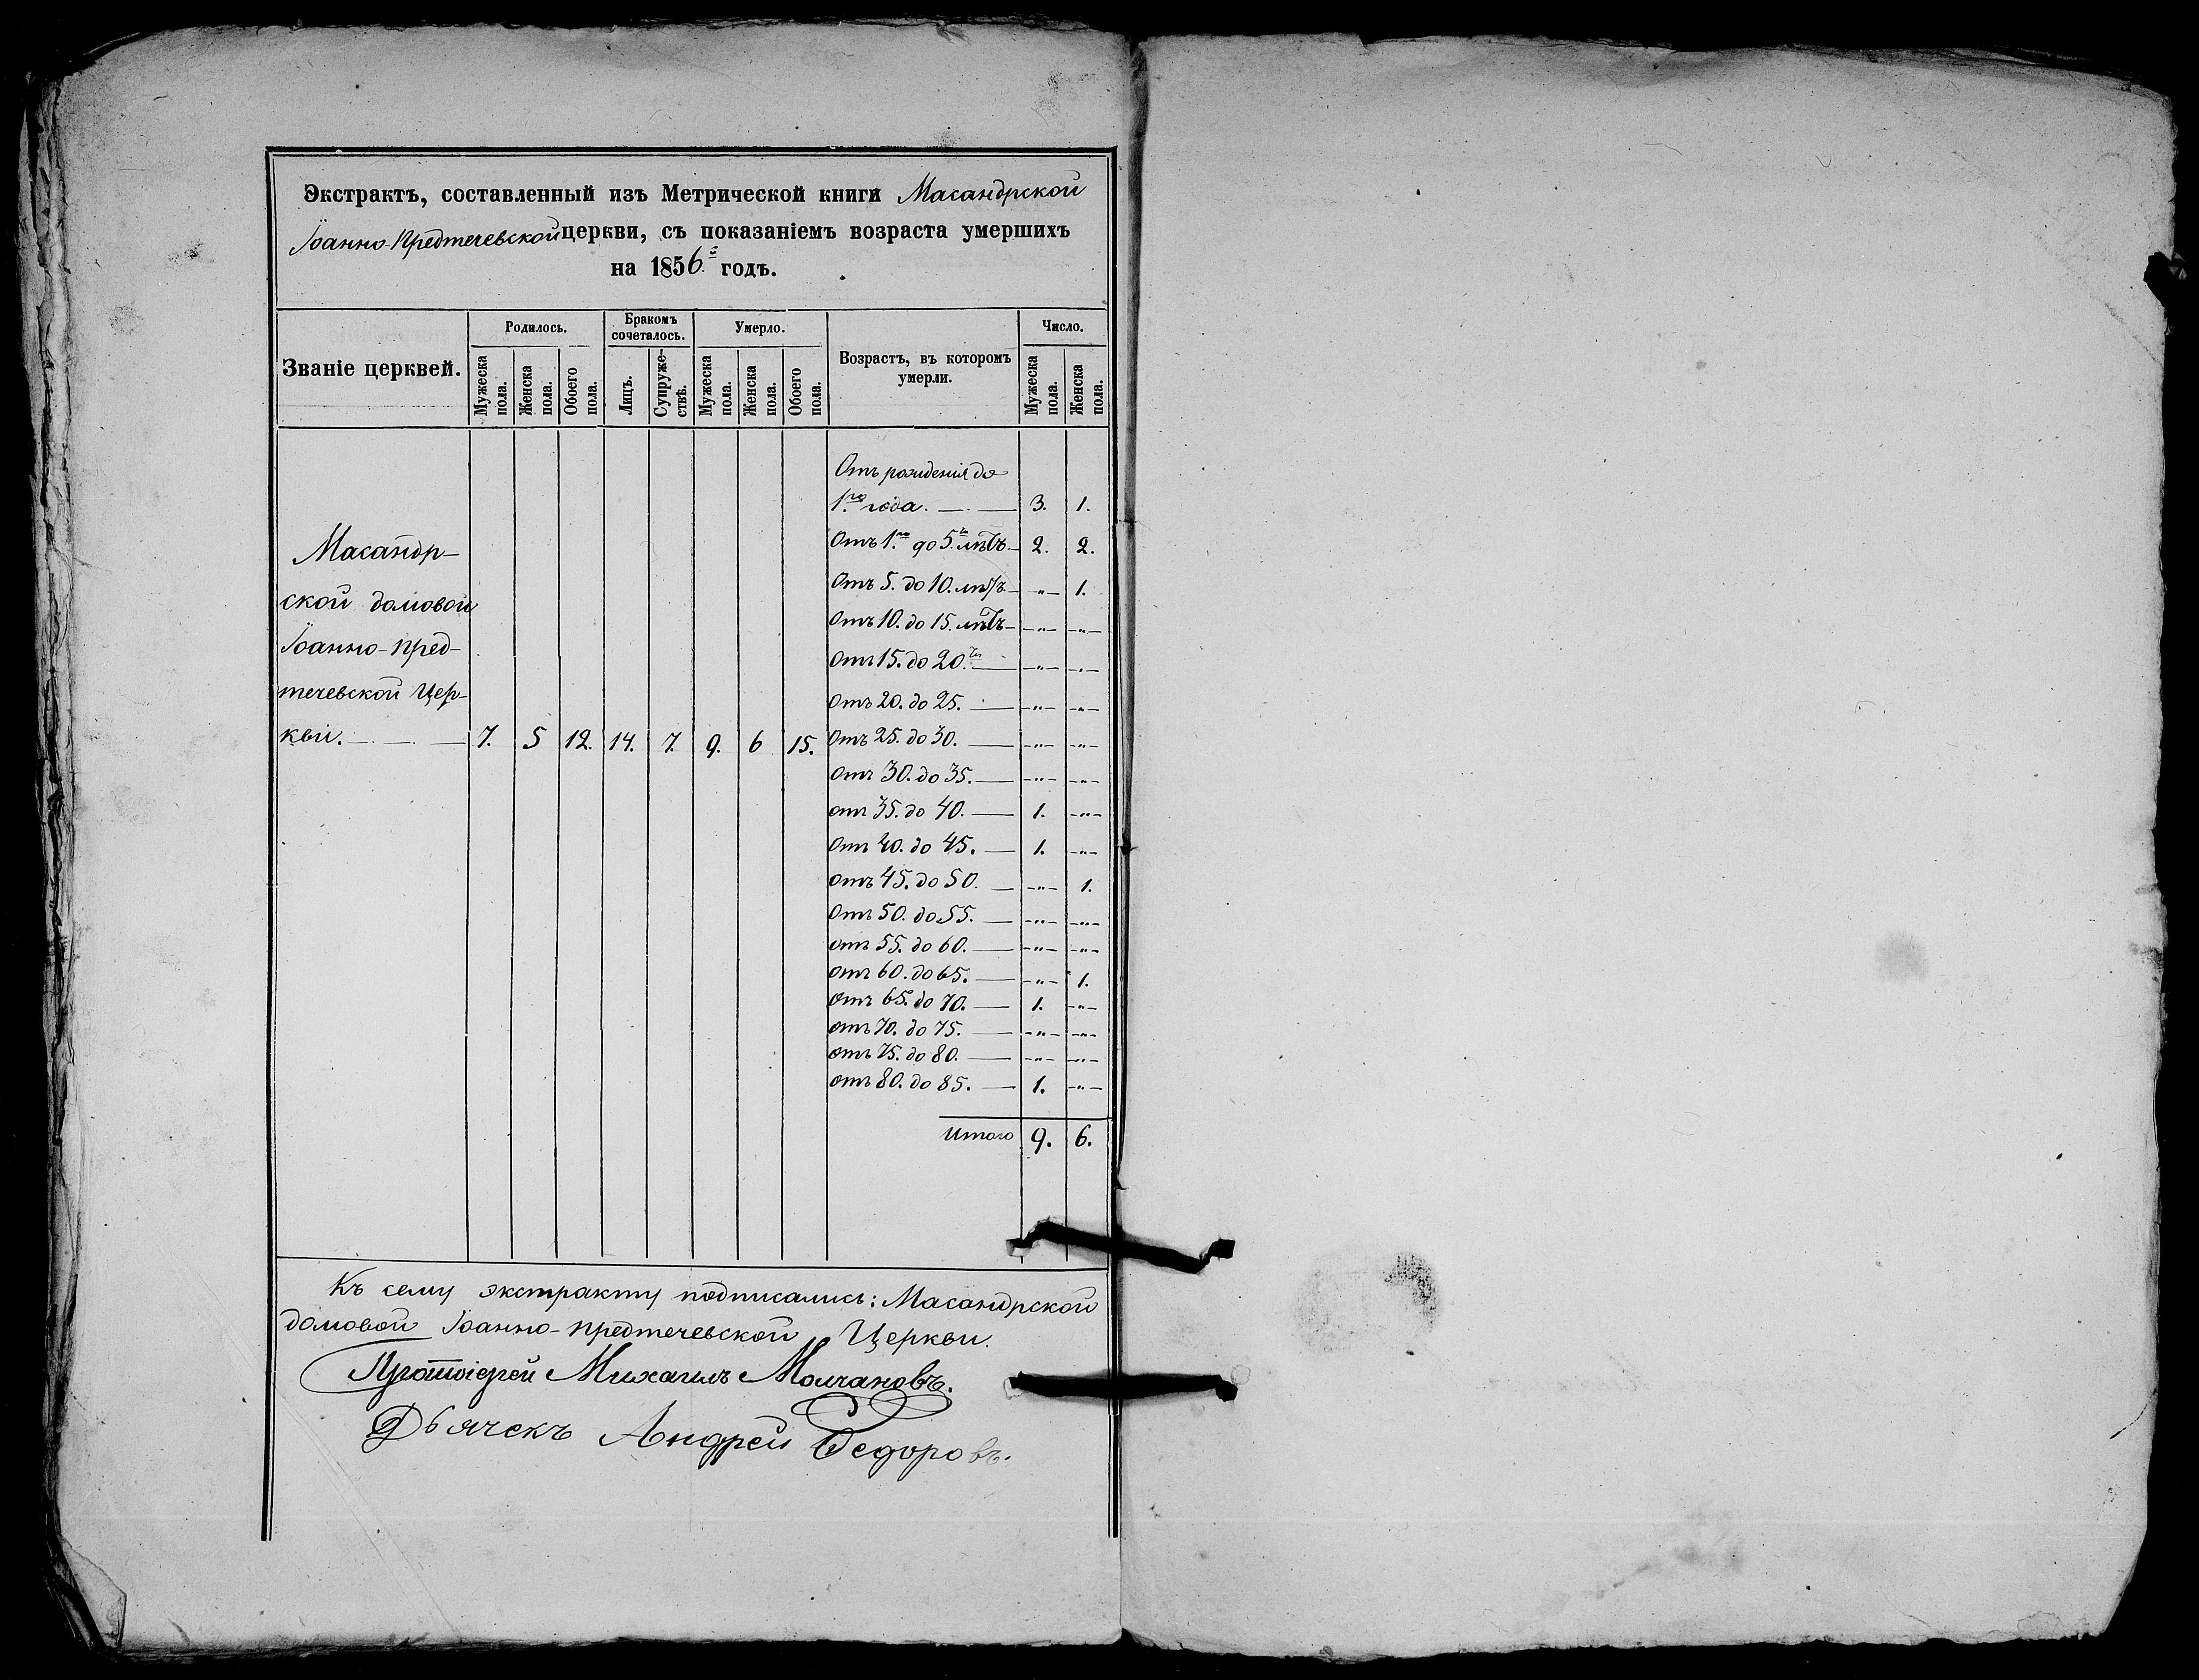 Экстрактъ, составленный изъ Метрической книги Масандрской
Іоанно-Предтечевской церкви, съ показаніемъ возраста умершихъ
на 1856й годъ.
Званіе церквей.
Родилось.
Бракомъ
сочеталось.
Умерло.
Возрастъ, въ которомъ
умерли.
Число.
Мужеска пола.
Женска пола.
Обоего пола.
Лицъ.
Супруже-
ствъ.
Мужеска пола.
Женска пола.
Обоего пола.
Мужеска пола.
Женска пола.
Масандр-
ской домовой
Іоанно-пред-
течевской Цер-
кви. 7. 5 12. 14. 7. 9. 6 15.
Отъ рожденія до
1го года. 3. 1.
Отъ 1го до 5ти лѣтъ 2. 2.
Отъ 5. до 10. лѣтъ -"- 1.
Отъ 10. до 15. лѣтъ -"- -"-
Отъ 15. до 20.ти -"- -"-
Отъ 20. до 25. -"- -"-
Отъ 25. до 30. -"- -"-
Отъ 30. до 35. -"- -"-
отъ 35. до 40. 1. -"-
Отъ 40. до 45. 1. -"-
отъ 45. до 50. -"- 1.
Отъ 50. до 55. -"- -"-
отъ 55. до 60. -"- -"-
отъ 60. до 65. -"- 1.
отъ 65. до 70. 1. -"-
отъ 70. до 75. -"- -"-
отъ 75. до 80. -"- -"-
отъ 80. до 85. 1. -"-
Итого 9. 6.
Къ сему экстракту подписались: Масандрской
домовой Іоанно-предтечевской Церкви.
Протоіерей Михаилъ Молчановъ.
Дьячекъ Андрей Федоровъ.